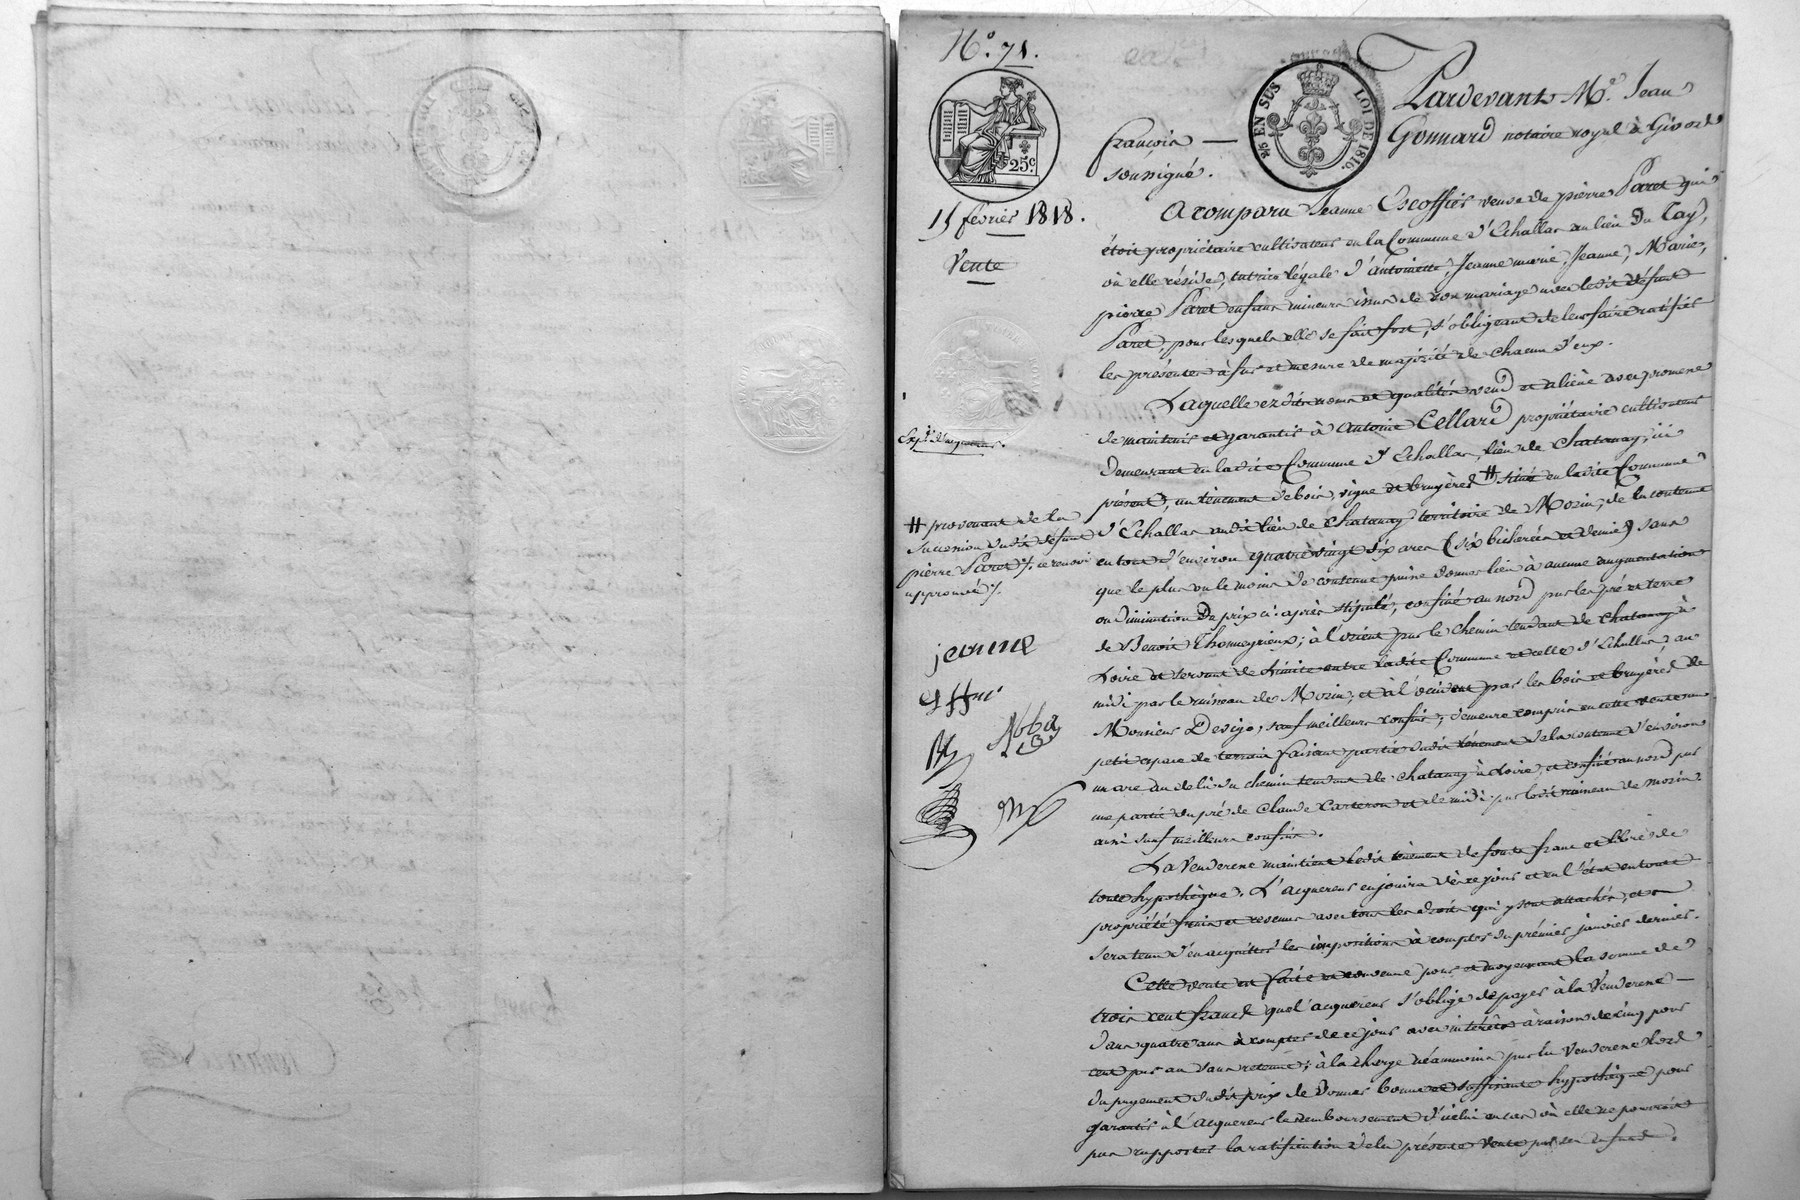 N.° 71.
25 c.
2/5 EN SUS
LOI DE 1816.
Pardevant M.e Jean
françois — Gonnard notaire royal à Givors
soussigné.
15 février 1818.
Vente
A comparu Jeanne Escoffier veuve de pierre Paret qui
étoit propriétaire cultivateur en la Commune d'Echallas au lieu du Tay,
où elle réside, tutrice légale d'antoinette, Jeanne marie, Jeanne, Marie,
pierre Paret enfans mineurs issus de son mariage avec ledit défunt
Paret, pour lesquels elle se fait fort, s'obligeant de leur faire ratifier
les présentes à fur et mesure de majorité de chacun d'eux.
Laquelle ez dits noms et qualités vend et aliène avec promesse
de maintenir et garantir à Antoine Cellard propriétaire cultivateur
demeurant en ladite Commune d'Echallas, lieu de Chatanay, ici
présent, un tènement de bois, vigne et bruyères # situé en ladite Commune
d'Echallas audit lieu de Chatanay territoire de Morin, de la contenue
en tout d'environ quatre vingt six ares (six bicherées et demie) sans
que le plus ou le moins de contenue puisse donner lieu à aucune augmentation
ou diminution du prix ci-après stipulé, confiné au nord par les pré et terre
de Benoit Thomeyrieux; à l'orient par le chemin tendant de Chatanay à
Loire et servant de limite entre ladite Commune et celle d'Echallas, au
midi par le ruisseau de Morin, et à l'occident par les bois et bruyères de
Monsieur Devigo, sauf meilleurs confins; demeure compris en cette vente un
petit espace de terrain faisant partie dudit tènement de la contenue d'environ
un are au delà du chemin tendant de Chatanay à Loire, et confiné au nord par
une partie du pré de Claude Carteron et de midi par ledit ruisseau de morin
aussi sauf meilleurs confins.
La Venderesse maintient ledit tènement de fonds franc et libre de
toute hypothèque. L'acquereur en jouira dès ce jour et en l'état en toute
propriété fruits et revenus avec tous les droits qui y sont attachés, et
sera tenu d'en acquitter les impositions à compter du prémier janvier dernier.
Cette vente est faite et convenue pour et moyennant la somme de
trois cent francs que l'acquereur s'oblige de payer à la Venderesse —
dans quatre ans à compter de ce jour avec intérêts à raison de cinq pour
cent par an sans retenue; à la charge néanmoins par la Venderesse lors
du payement dudit prix de donner bonne et suffisante hypothèque pour
garantir à l'acquereur le remboursement d'icelui en cas où elle ne pourroit
pas rapporter la ratification de la présente vente par ses enfans.
# provenant de la
succession dudit défunt
pierre Paret /. ce renvoi
approuvé /.
jeanne